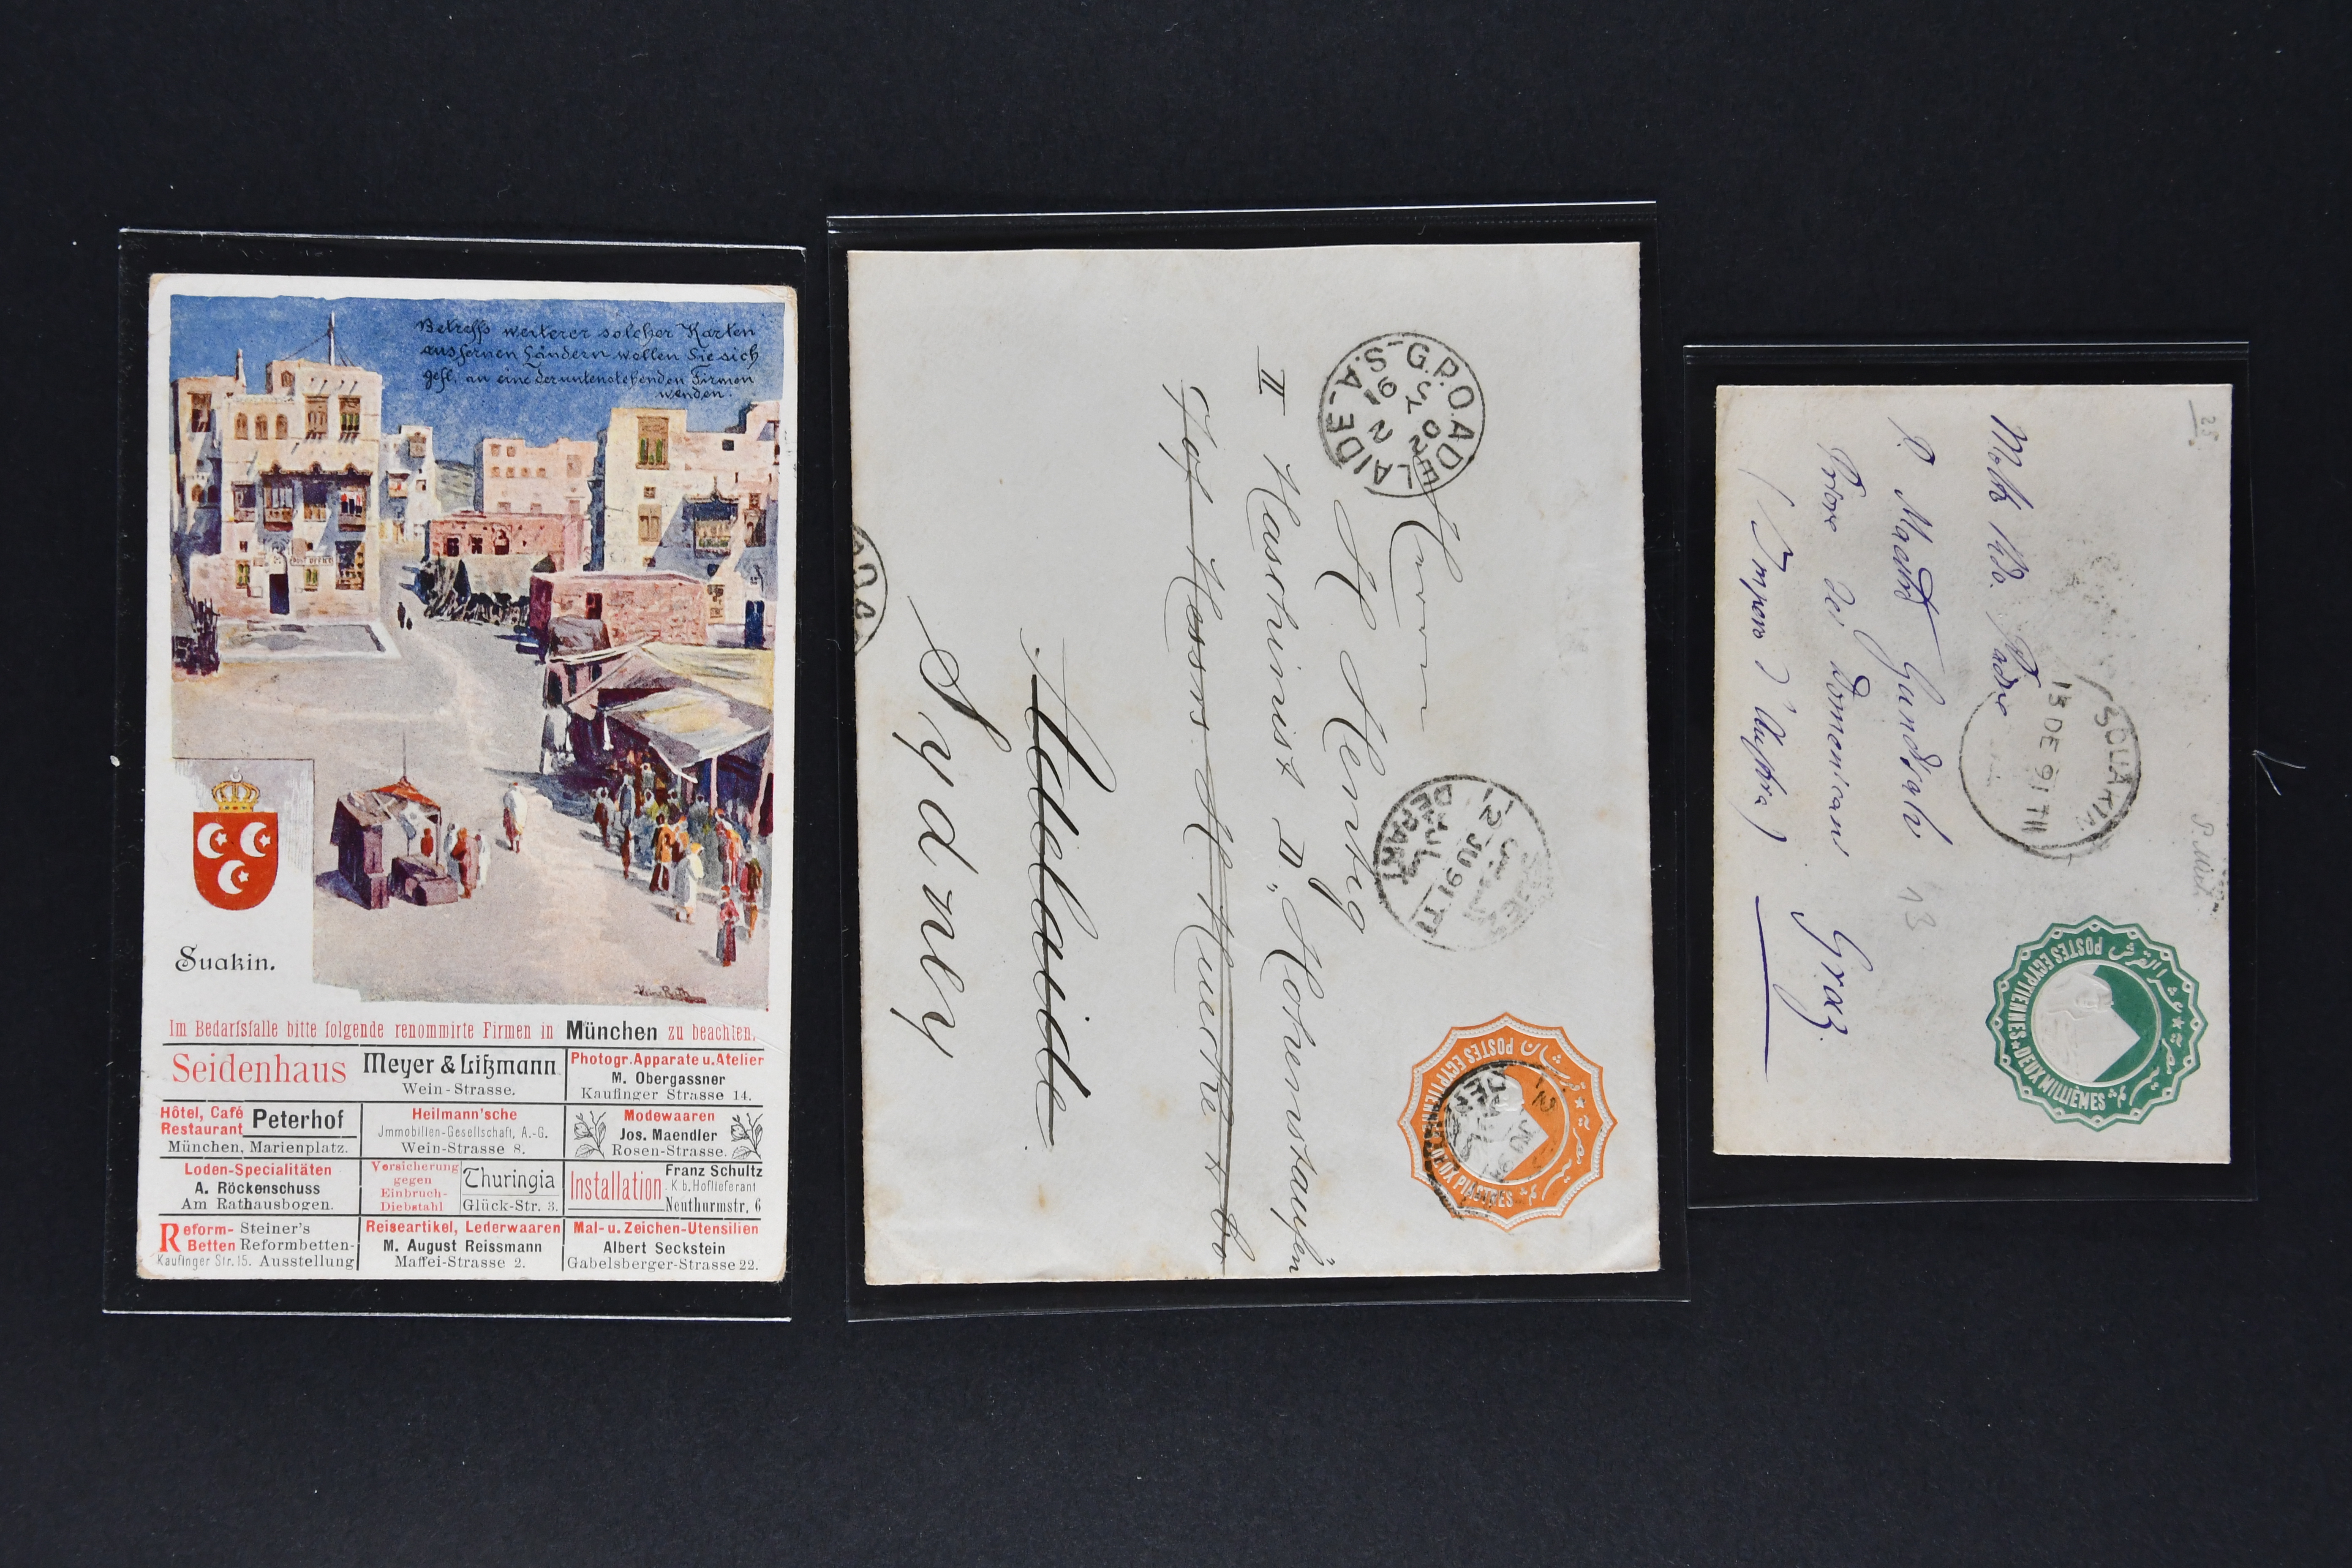 Betreffs weiterer solcher Karten
aus fernen Ländern wollen Sie sich
gefl. an eine der untenstehenden Firmen
wenden.
POST OFFICE
Suakin.
Im Bedarfsfalle bitte folgende renommirte Firmen in München zu beachten.
Seidenhaus Meyer & Lißmann
Wein-Strasse.
Photogr. Apparate u. Atelier
M. Obergassner
Kaufinger Strasse 14.
Hôtel, Café
Restaurant Peterhof
München, Marienplatz.
Heilmann'sche
Jmmobilien-Gesellschaft, A.-G.
Wein-Strasse 8.
Modewaaren
Jos. Maendler
Rosen-Strasse.
Loden-Specialitäten
A. Röckenschuss
Am Rathausbogen.
Versicherung
gegen
Einbruch-
Diebstahl
Thuringia
Glück-Str. 3.
Installation
Franz Schultz
K. b. Hoflieferant
Neuthurmstr. 6
Reform-
Betten
Steiner's
Reformbetten-
Kaufinger Str. 15. Ausstellung
Reiseartikel, Lederwaaren
M. August Reissmann
Maffei-Strasse 2.
Mal- u. Zeichen-Utensilien
Albert Seckstein
Gabelsberger-Strasse 22.
G.P.O. ADELAIDE S.A.
2
JY 02
91
Herrn
H. Hentig
II Maschinist D., Hohenstaufen
Adelaide
Sydney
DEPART
2 JU 91 T1
POSTES EGYPTIENNES
DEUX PIASTRES
DEPART
JU 91
25
Molto Rdo. Padre
P.
Priore dei Domenicani
Graz.
(Impero d'Austria)
13
SOUAKIN
13 DE 91 TII
POSTES EGYPTIENNES
DEUX MILLIÈMES